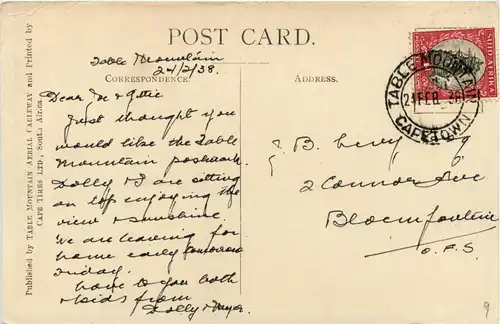 POST CARD.
Table Mountain
24/2/38.
CORRESPONDENCE.
Dear Joe & Ettie
Just thought you
would like the Table
Mountain postmark.
Dolly & I are sitting
on top enjoying the
view & sunshine.
We are leaving for
home early tomorrow
Friday.
Love to you both
& kids from
Dolly &
ADDRESS.
B. Levy
2 Connor Ave
Bloemfontein
O.F.S
TABLE MOUNTAIN
24 FEB 38
CAPETOWN
Published by TABLE MOUNTAIN AERIAL CABLEWAY and Printed by
CAPE TIMES LTD., South Africa.
9